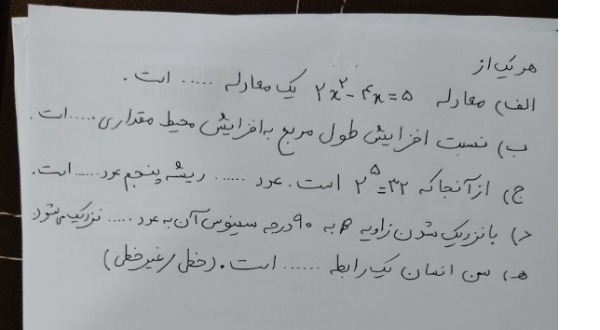 هر یک از
الف) معادله ۲x²-۴x=۵ یک معادله ..... است.
ب) نسبت افزایش طول مربع به افزایش محیط مقداری ..... است.
ج) از آنجا که ۲⁵=۳۲ است. عدد ...... ریشه پنجم عدد ...... است.
د) با نزدیک شدن زاویه به ۹۰ درجه سینوس آن به عدد ..... نزدیک می‌شود
هـ) سن انسان یک رابطه ...... است. (خطی/غیرخطی)